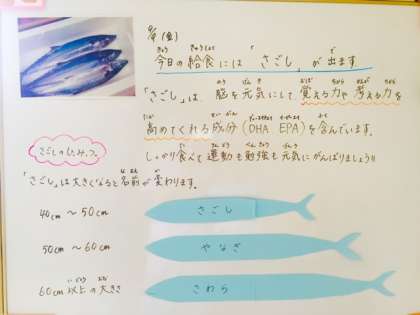 (金)
今日の給食には「さごし」が出ます。
「さごし」は、脳を元気にして、覚える力や考える力を
高めてくれる成分(DHA EPA)を含んでいます。
しっかり食べて運動も勉強も元気にがんばりましょう!!
さごしのひみつ。
「さごし」は大きくなると名前が変わります。
40cm 〜 50cm
さごし
50cm 〜 60cm
やなぎ
60cm以上の大きさ
さわら